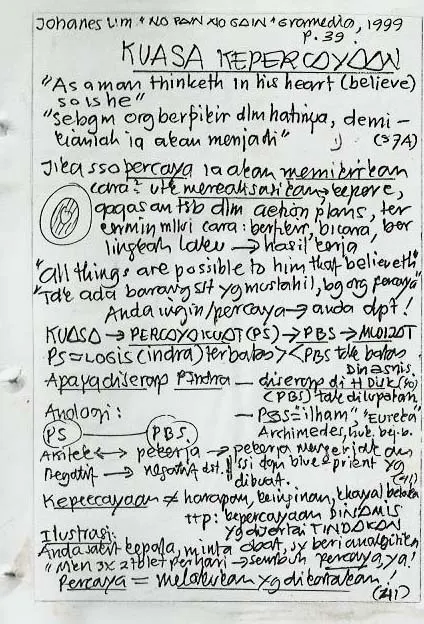 Johanes Lim "NO PAIN NO GAIN" Gramedia, 1999
p. 39:
KUASA KEPERCAYAAN
"As a man thinketh in his heart (believe)
so is he"
"sebgm org berpikir dlm hatinya, demi-
kianlah ia akan menjadi" (37A)
Jika sso percaya ia akan memikirkan
cara² utk merealisasikan kepcre,
gagasan tsb dlm action plans, ter
cermin mlli cara: berpikir, bicara, ber
tingkah laku → hasil kerja
"all things are possible to him that believeth"
"Tdk ada barang st yg mustahil, bg org percaya"
Anda ingin/percaya → anda dpt!
KUASA → PERCAYA KUAT (PS) → PBS → MUJIZAT
PS = LOGIS (indra) terbatas >< PBS tdk batas
Apa yg diserap P. Indra — diserap di
(PBS) tdk dilupakan
Analogi: — PBS = "ilham", "Eureka"
PS — PBS Archimedes, huk. bej. b.
Arsitek ↔ pekerja → pekerja mengerjakan
Negatif → negatif dst. ssi dgn blue prient yg
dibuat. (241)
Kepercayaan ≠ harapan, keinginan, khayal belaka
ttp: kepercayaan DINAMIS
yg disertai TINDAKAN
Ilustrasi:
Anda sakit kepala, minta obat, sy beri analgitika
"Mkn 3x 2 tblet perhari → sembuh percaya, ya!
Percaya = melakukan yg dikatakan!
(241)